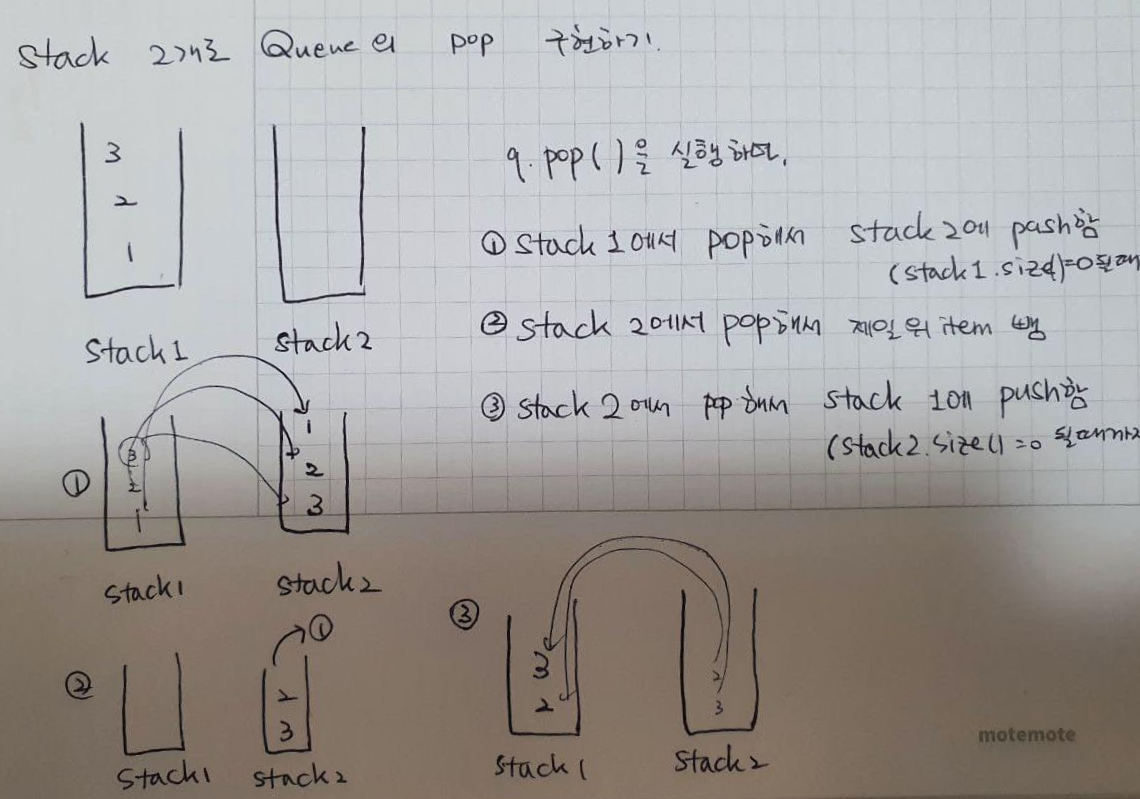 Stack 2개로 Queue의 pop 구현하기.
3
2
1
Stack1
Stack2
q.pop()을 실행하면,
① Stack 1에서 pop해서 stack 2에 push함
(stack1.size()=0 될때
② Stack 2에서 pop해서 제일 위 item 뺌
③ Stack 2에서 pop해서 stack 1에 push함
(stack2.size()=0 될때까지
①
3
2
1
Stack1
1
2
3
Stack2
②
Stack1
①
2
3
Stack2
③
3
2
Stack1
2
3
Stack2
motemote